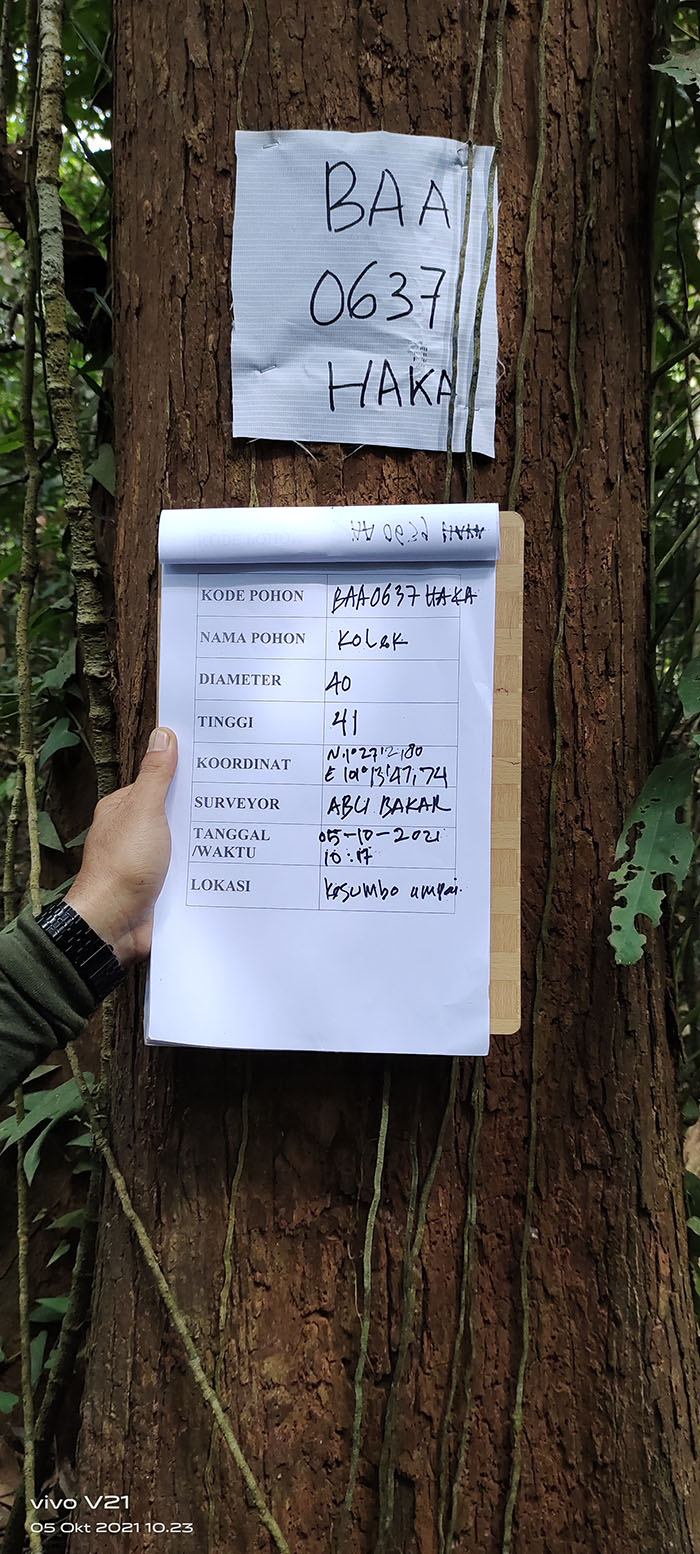 BAA
0637
HAKA
KODE POHON BAA0637 HAKA
NAMA POHON Kolek
DIAMETER 40
TINGGI 41
KOORDINAT N.1°27'2,80
E 101°13'47,74
SURVEYOR ABU BAKAR
TANGGAL 05-10-2021
/WAKTU 10:17
LOKASI Kesumbo ampai.
vivo V21
05 Okt 2021 10.23